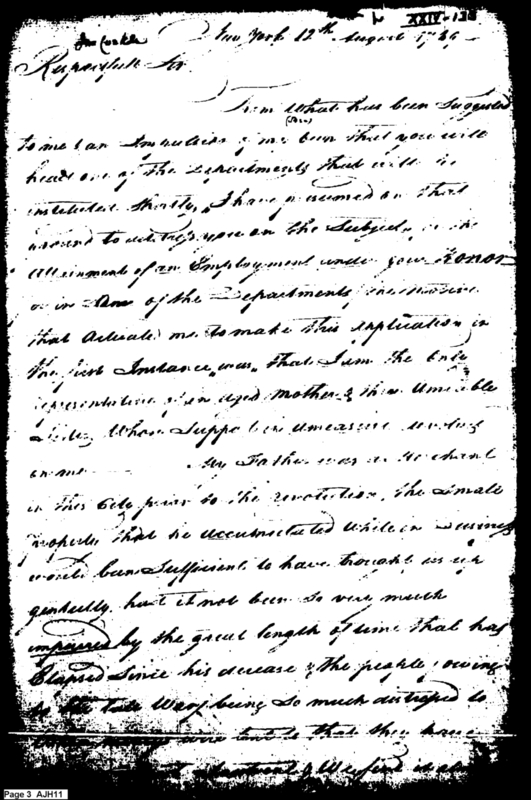 XXIV-138
New York 12th August 1789
Respected Sir
From What has been Suggested
to me & an of me been that you will
head one of the Departments that will be
instituted shortly, I have presumed on that
ground to address you on the Subject, is the
attainment of an Employment under your Honor
or in One of the Departments, the motive
that Actuated me to make this application in
the first Instance was, that I am the Only
representative of an aged Mother & three Amiable
Sisters Whose Support in a measure
on me My Father was a Merchant
in this City prior to the revolution, the Small
property that he Accumulated While in Business
would been Sufficient to have brought us up
genteelly, had it not been So very much
impaired by the great length of time that has
Elapsed Since his decease & the people owing
to the late War, being So much distressed to
that they have
Page 3 AJH11